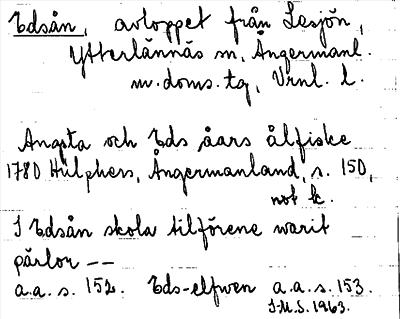 Edsån, avloppet från Lesjön,
Ytterlännäs sn, Ångermanl.
m. doms. tg, Vrnl. l.
Angsta och Eds åars ålfiske
1780 Hülphers, Ångermanland, s. 150,
not k.
I Edsån skola tilförene warit
pärlor --
a.a. s. 152. Eds-elfwen a.a. s. 153.
I.M.S. 1963.